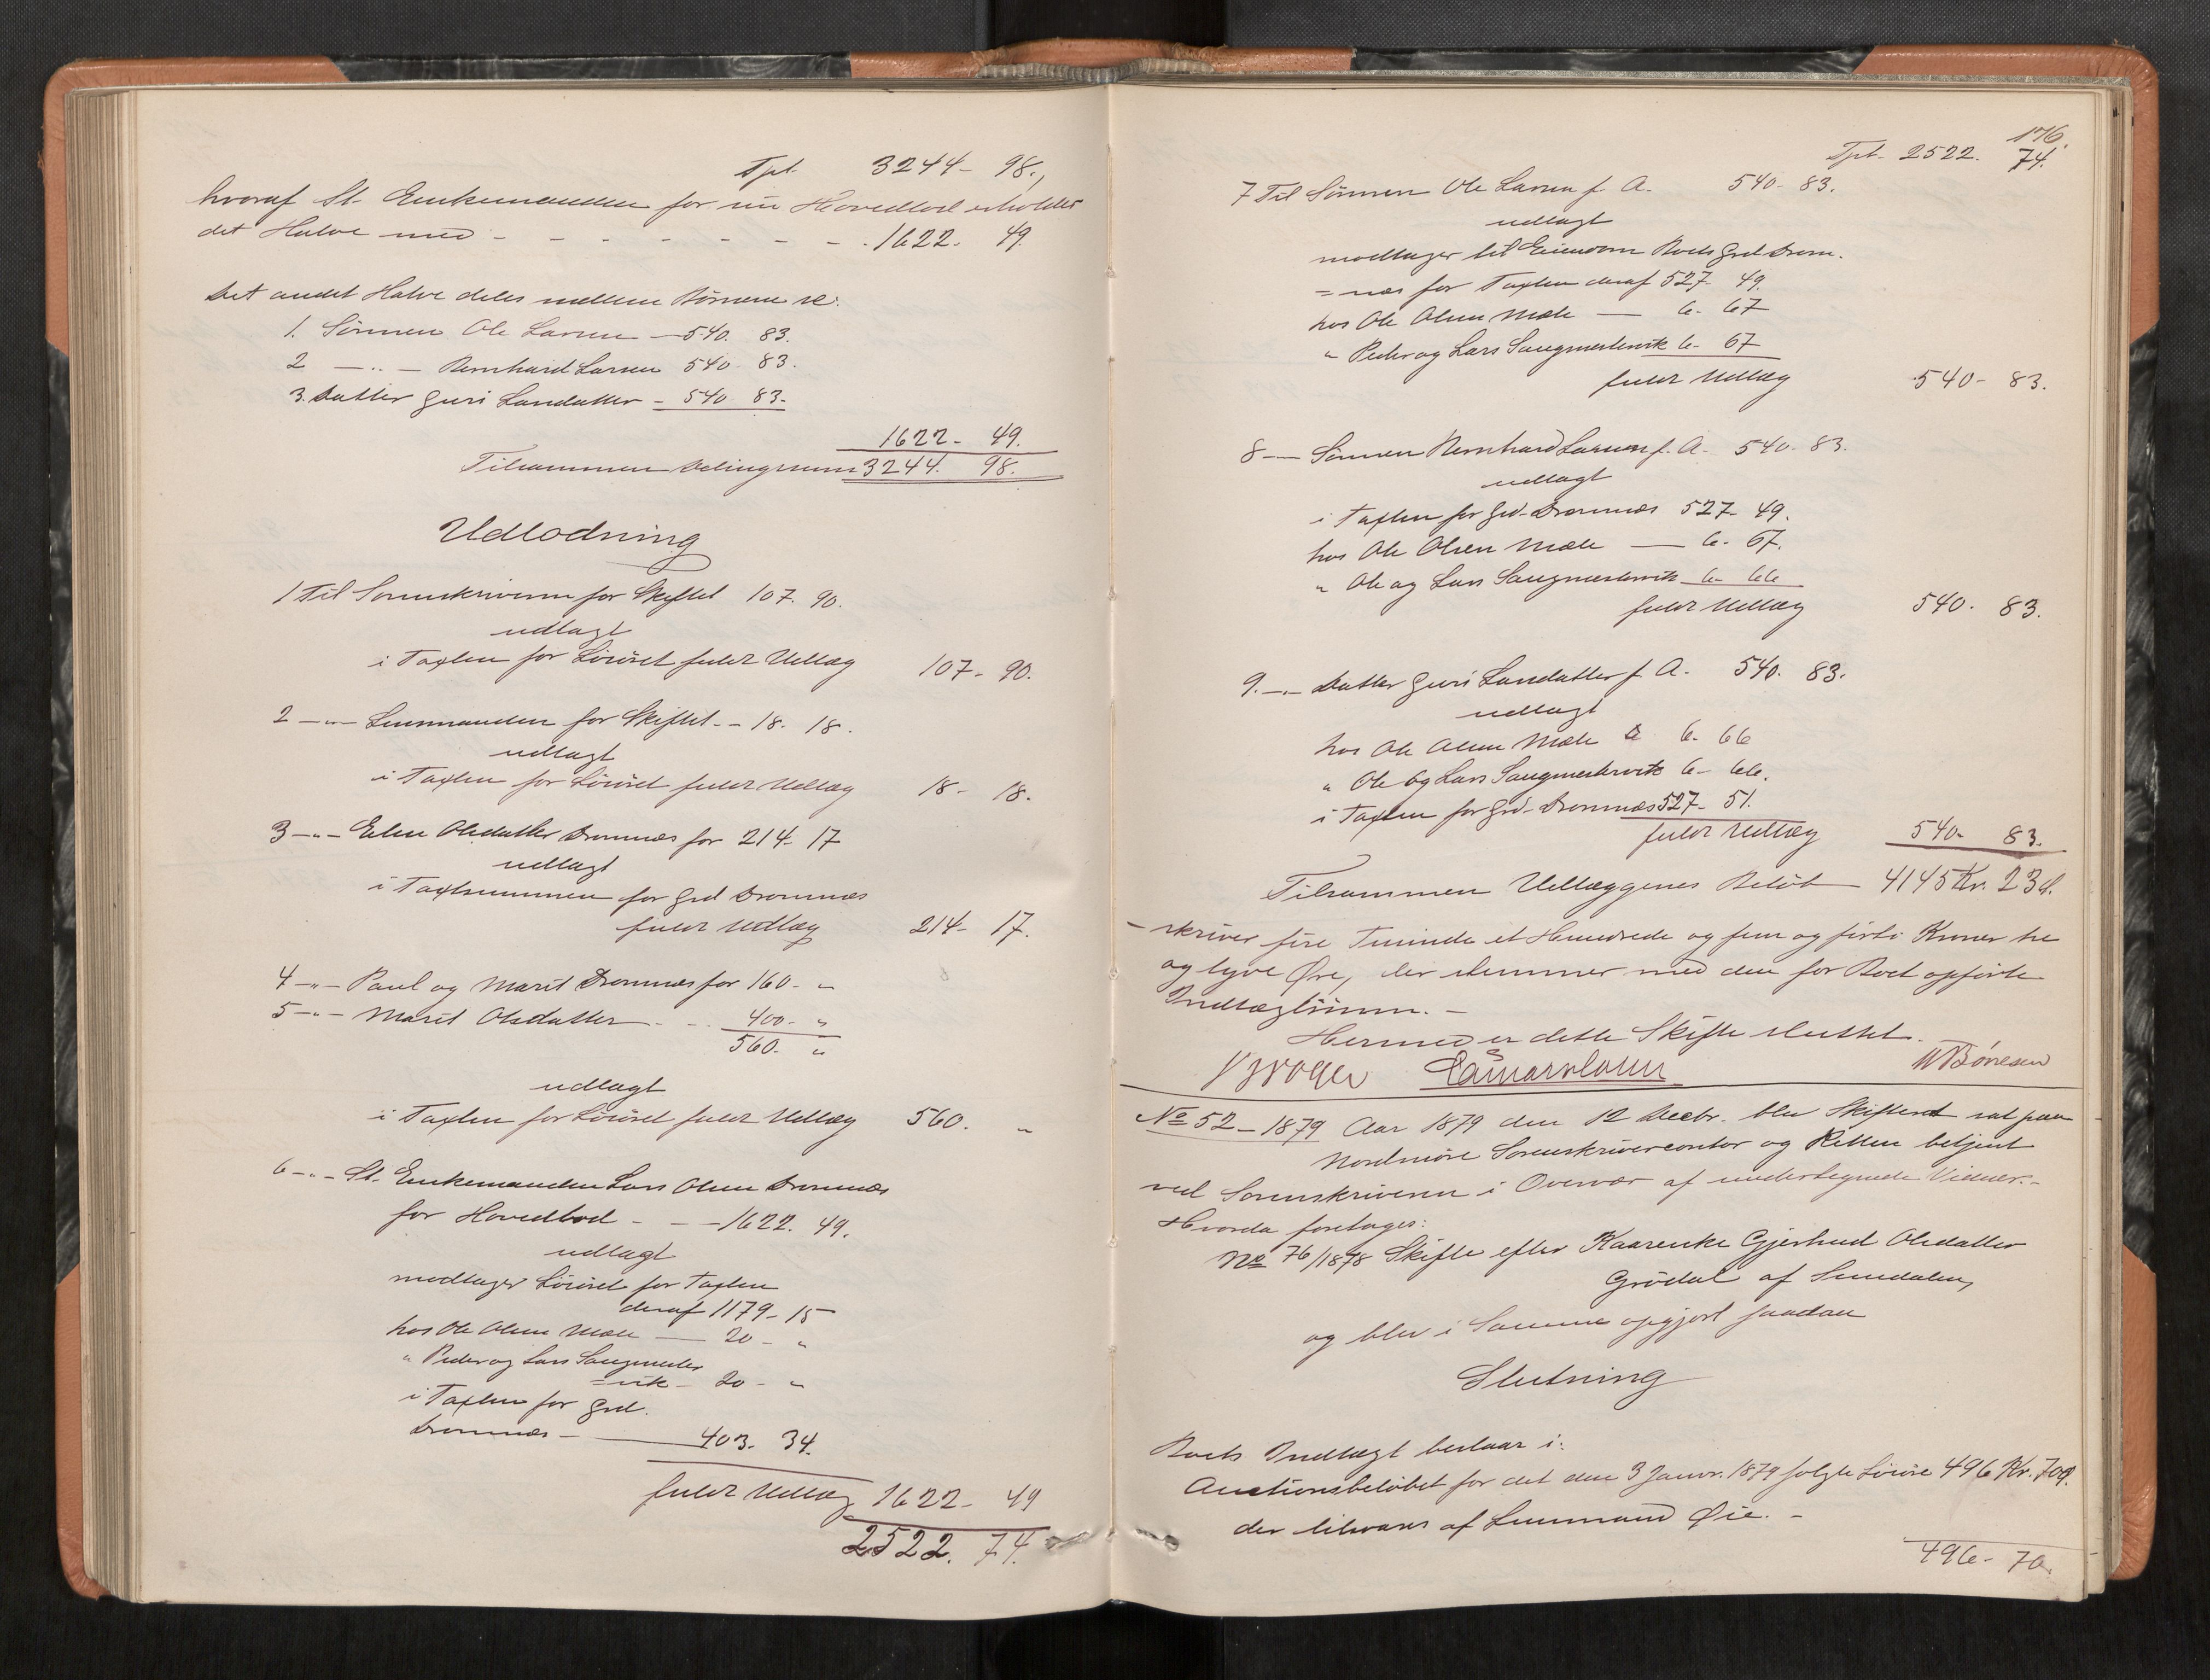 Tpt. 3244 - 98.
hvoraf St. Enkemanden for sin Hovedlod erholder
det Halve med - - - - - - - 1622. 49.
Det andet Halve deles mellem Börnene sc:
1. Sönnen Ole Larsen - 540. 83.
2 - " - Bernhard Larsen 540 83.
3. Datter Guri Larsdatter - 540 83.
1622 - 49.
Tilsammen Delingssum 3244. 98.
Udlodning
1 Til Sorenskriveren for Skiftet 107. 90.
udlagt
i Taxten for Lösöret fuldt Udlæg 107 - 90.
2 - " - Lensmanden for Skiftet - - 18. 18.
udlagt
i Taxten for Lösöret fuldt Udlæg 18 - 18.
3 - " - Elen Olsdatter Dromnæs for 214 - 17
udlagt
i Taxtsummen for Grd Dromnæs
fuldt Udlæg 214 - 17.
4 - " - Paul og Marit Dromnæs for 160 - "
5 - " - Marit Olsdatter - - 400 - "
560. "
udlagt
i Taxten for Lösöret fuldt Udlæg 560. "
6 - " - St. Enkemanden Lars Olsen Dromnæs
for Hovedlod - - - 1622. 49.
udlagt
modtager Lösöret for Taxten
deraf 1179 - 15
hos Ole Olsen Mæle - 20 - "
" Peder og Lars Saugmester
= vik - 20 - "
i Taxten for Grd.
Dromnæs - 403. 34.
fuldt Udlæg 1622 - 49
2522. 74.
176.
Tpt. 2522. 74.
7 Til Sönnen Ole Larsen f. A. 540 - 83.
udlagt
modtager til Eiendom Boets Grd Drom-
= næs for Taxten deraf 527 49.
hos Ole Olsen Mæle - 6. 67
" Peder og Lars Saugmestervik 6. 67
fuldt Udlæg 540 - 83.
8 - - Sönnen Bernhard Larsen f. A. 540 - 83.
udlagt
i Taxten for Grd. Dromnæs 527 - 49.
hos Ole Olsen Mæle - 6. 67.
" Ole og Lars Saugmestervik 6 - 66
fuldt Udlæg 540. 83.
9. - " - Datter Guri Larsdatter f. A. 540. 83.
udlagt
hos Ole Olsen Mæle 6. 66
" Ole og Lars Saugmestervik 6 - 66.
i Taxten for Grd. Dromnæs 527 - 51.
fuldt Udlæg 540 - 83.
Tilsammen Udlæggenes Belöb - 4145 Kr. 23 ö.
- skriver fire Tusinde et Hundrede og fem og förti Kroner tre
og tyve Öre, der stemmer med den for Boet opförte
Indtægtssum. -
Hermed er dette Skifte sluttet.
No 52 - 1879 Aar 1879 den 12 Decbr. blev Skifteret sat paa
Nordmöre Sorenskrivercontor og Retten betjent
ved Sorenskriveren i Overvær af undertegnede Vidner. -
Hvorda foretages:
No 76/1878 Skifte efter Kaarenke Gjertrud Olsdatter
Grödal af Sundalen,
og blev i Samme opgjort saadan
Slutning
Boets Indtægt bestaar i:
Auctionsbelöbet for det den 3 Januar. 1879 solgte Lösöre 496 Kr. 70 ö.
der tilsvares af Lensmand Øie. -
496 - 70.